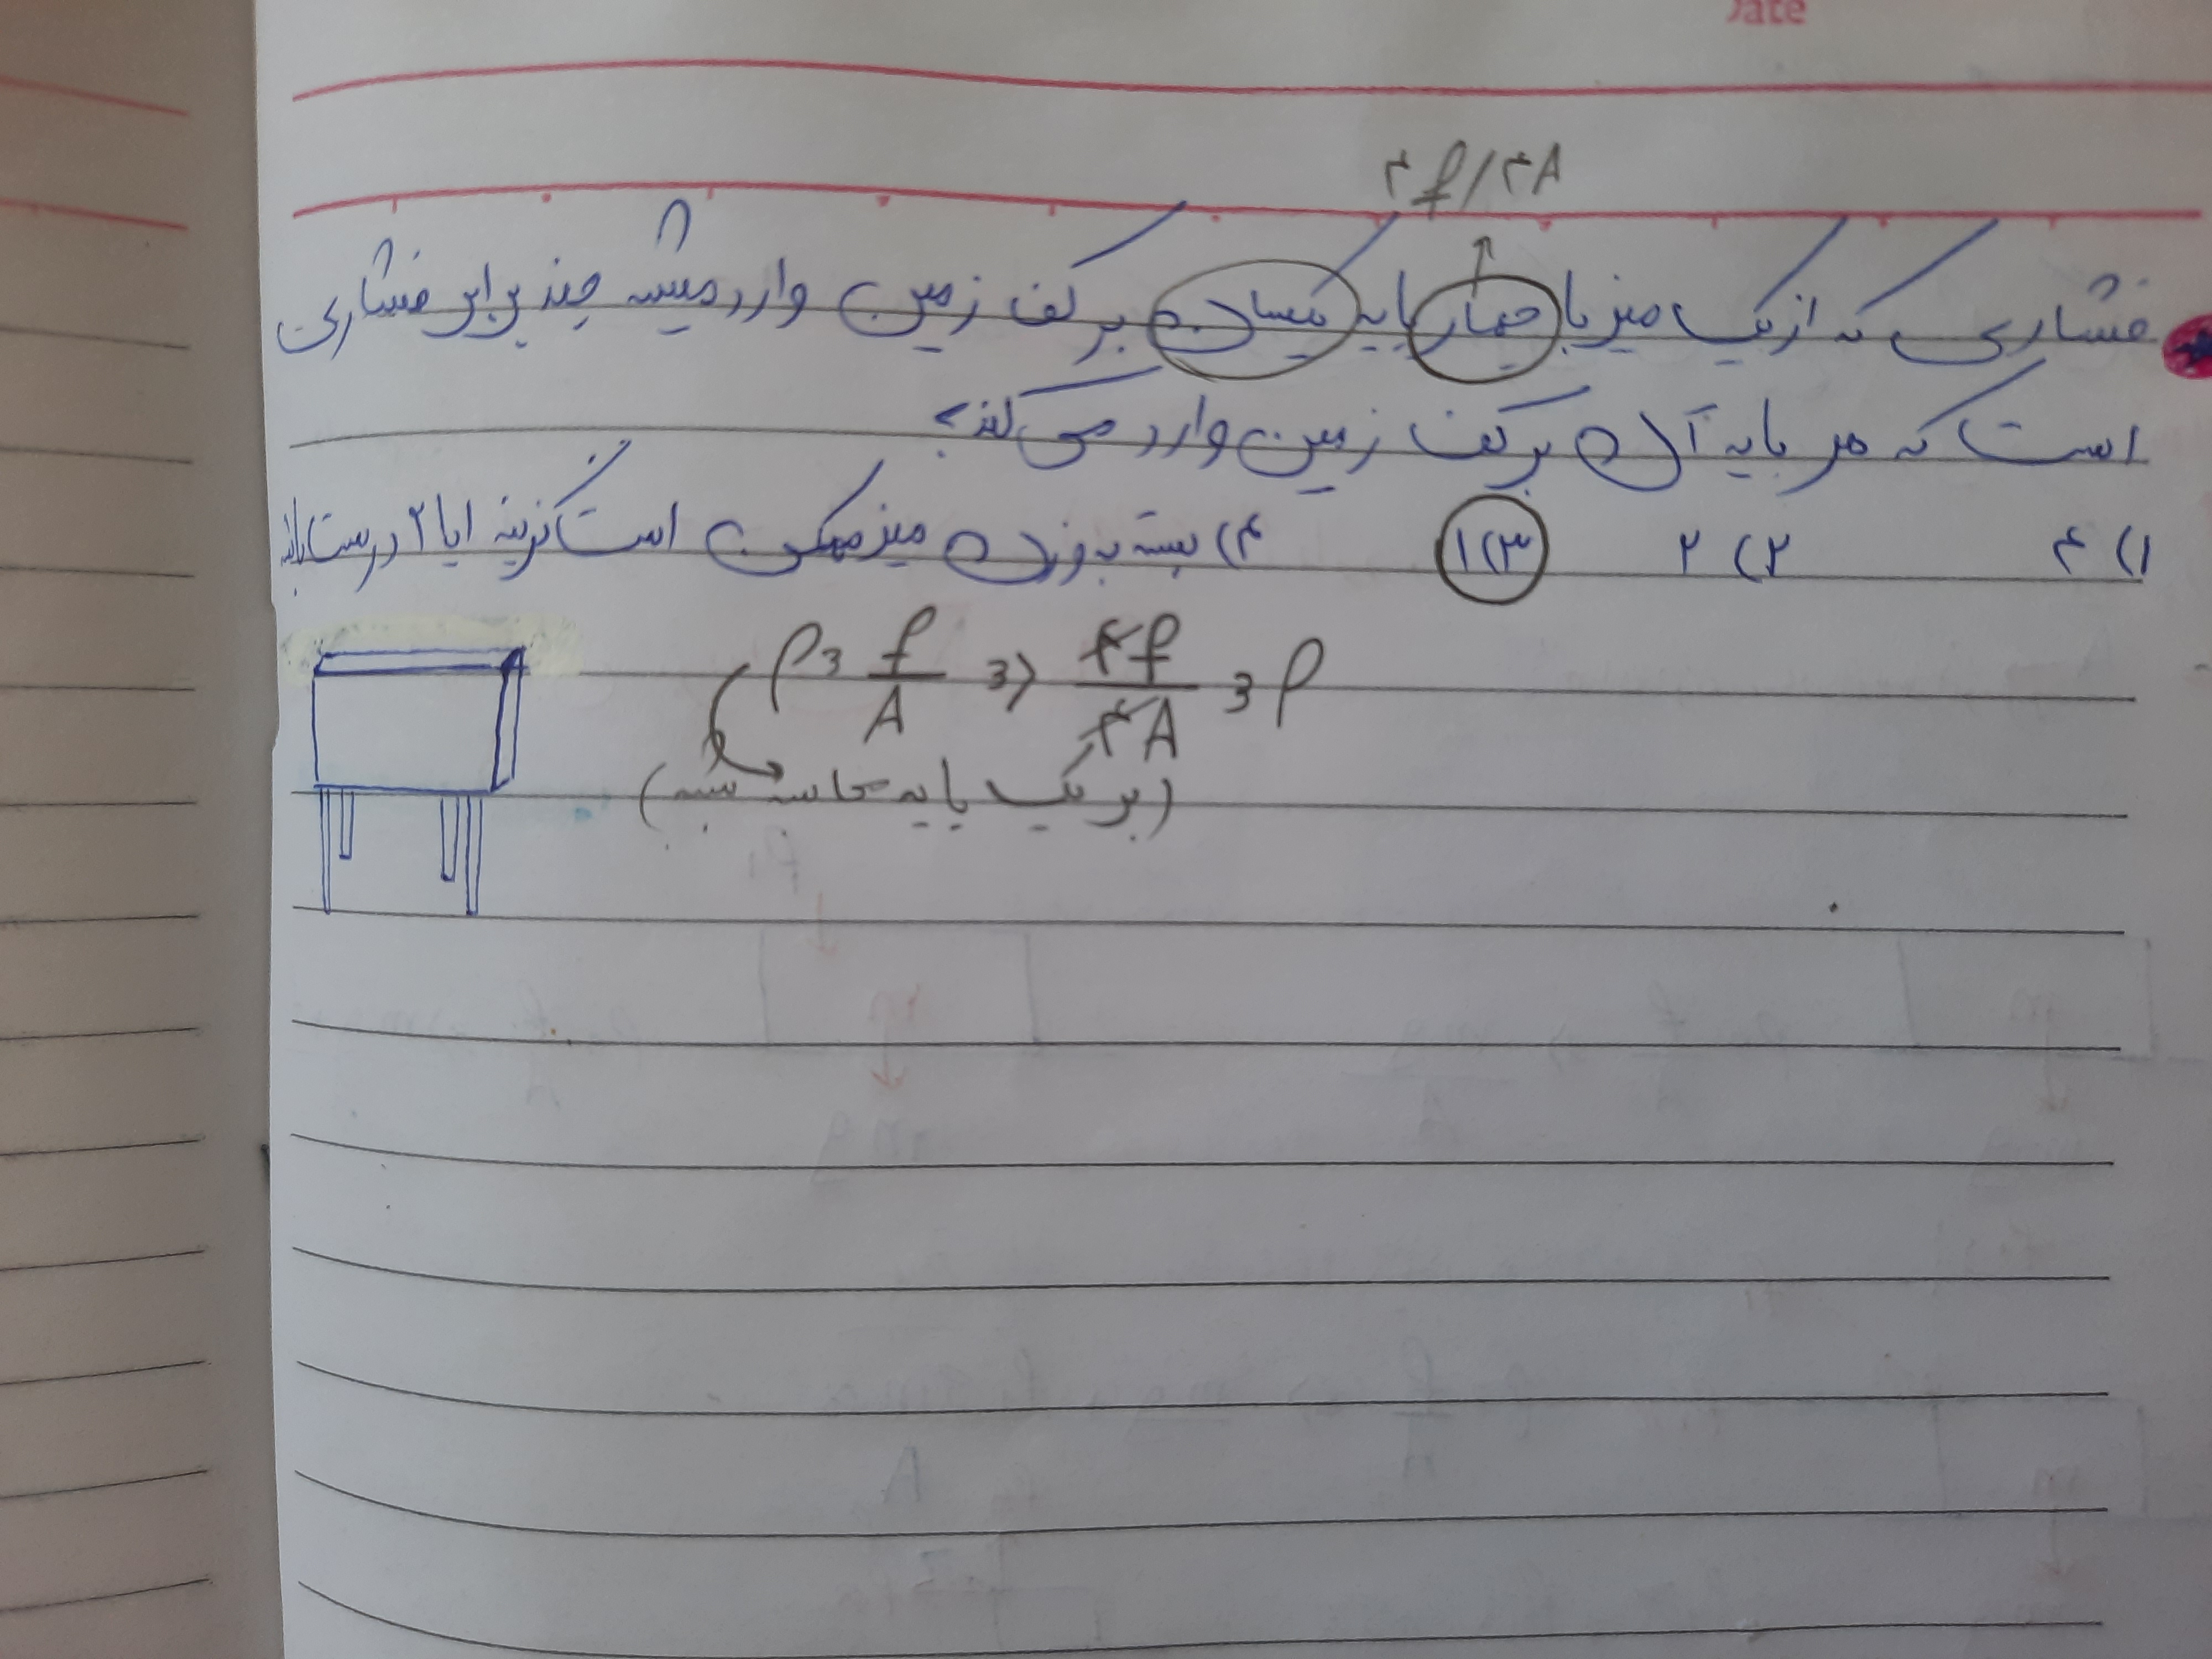 Date
۴f/۴A
فشاری که از یک میز با چهار پایه یکسان بر کف زمین وارد میشه چند برابر فشاری
است که هر پایه آن بر کف زمین وارد می کند؟
۱) ۴ ۲) ۲ ۳) ۱ ۴) بسته به وزن میز ممکن است گزینه ۱ یا ۲ درست باشد
P = f/A => ۴f/۴A = P
(بر یک پایه محاسبه شده)